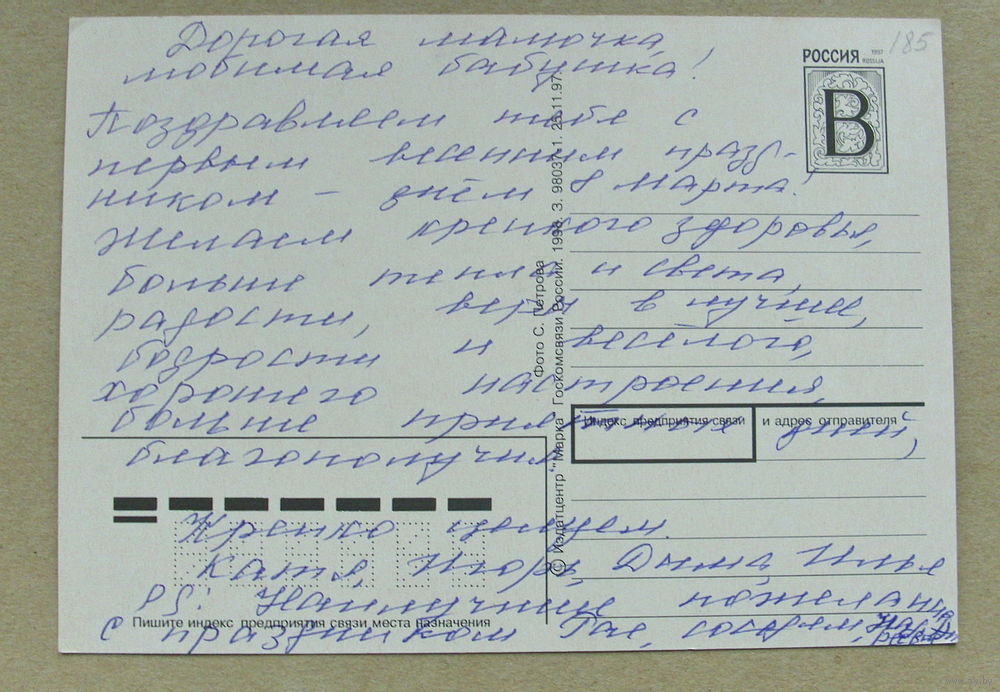 Дорогая мамочка,
любимая бабушка!
Поздравляем тебе с
первым весенним празд-
ником – днём 8 марта!
Желаем крепкого здоровья,
больше тепла и света,
радости, веры в лучшее,
бодрости и весёлого,
хорошего настроения,
больше приятных дней,
благополучия
Крепко целуем.
Катя, Игорь, Дима, Илья
PS: Наилучшие пожелания
с праздником Тае, соседям,
185
РОССИЯ 1997
ROSSIJA
В
Фото С. Петрова
© Издатцентр "Марка". Госкомсвязи России. 1998. З. 98037-1. 26.11.97.
Индекс предприятия связи и адрес отправителя
Пишите индекс предприятия связи места назначения
www.ay.by